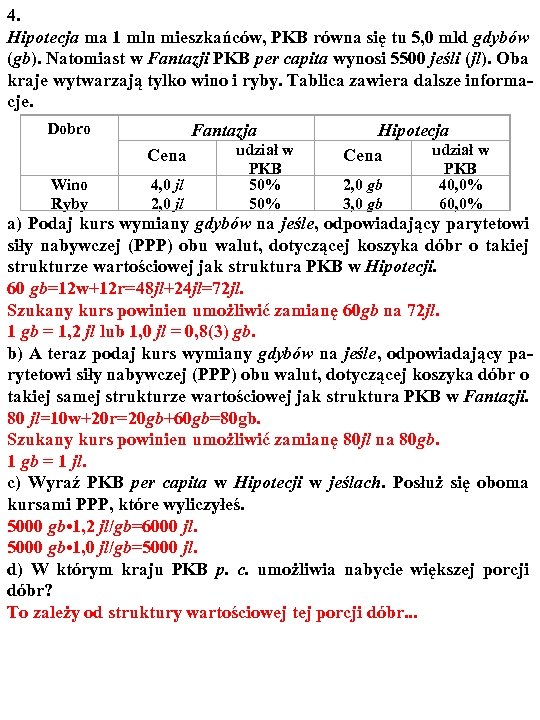 4.
Hipotecja ma 1 mln mieszkańców, PKB równa się tu 5,0 mld gdybów
(gb). Natomiast w Fantazji PKB per capita wynosi 5500 jeśli (jl). Oba
kraje wytwarzają tylko wino i ryby. Tablica zawiera dalsze informa-
cje.
Dobro Fantazja Hipotecja
Cena udział w PKB Cena udział w PKB
Wino 4,0 jl 50% 2,0 gb 40,0%
Ryby 2,0 jl 50% 3,0 gb 60,0%
a) Podaj kurs wymiany gdybów na jeśle, odpowiadający parytetowi
siły nabywczej (PPP) obu walut, dotyczącej koszyka dóbr o takiej
strukturze wartościowej jak struktura PKB w Hipotecji.
60 gb=12w+12r=48jl+24jl=72jl.
Szukany kurs powinien umożliwić zamianę 60gb na 72jl.
1 gb = 1,2 jl lub 1,0 jl = 0,8(3) gb.
b) A teraz podaj kurs wymiany gdybów na jeśle, odpowiadający pa-
rytetowi siły nabywczej (PPP) obu walut, dotyczącej koszyka dóbr o
takiej samej strukturze wartościowej jak struktura PKB w Fantazji.
80 jl=10w+20r=20gb+60gb=80gb.
Szukany kurs powinien umożliwić zamianę 80jl na 80gb.
1 gb = 1 jl.
c) Wyraź PKB per capita w Hipotecji w jeślach. Posłuż się oboma
kursami PPP, które wyliczyłeś.
5000 gb•1,2 jl/gb=6000 jl.
5000 gb•1,0 jl/gb=5000 jl.
d) W którym kraju PKB p. c. umożliwia nabycie większej porcji
dóbr?
To zależy od struktury wartościowej tej porcji dóbr...